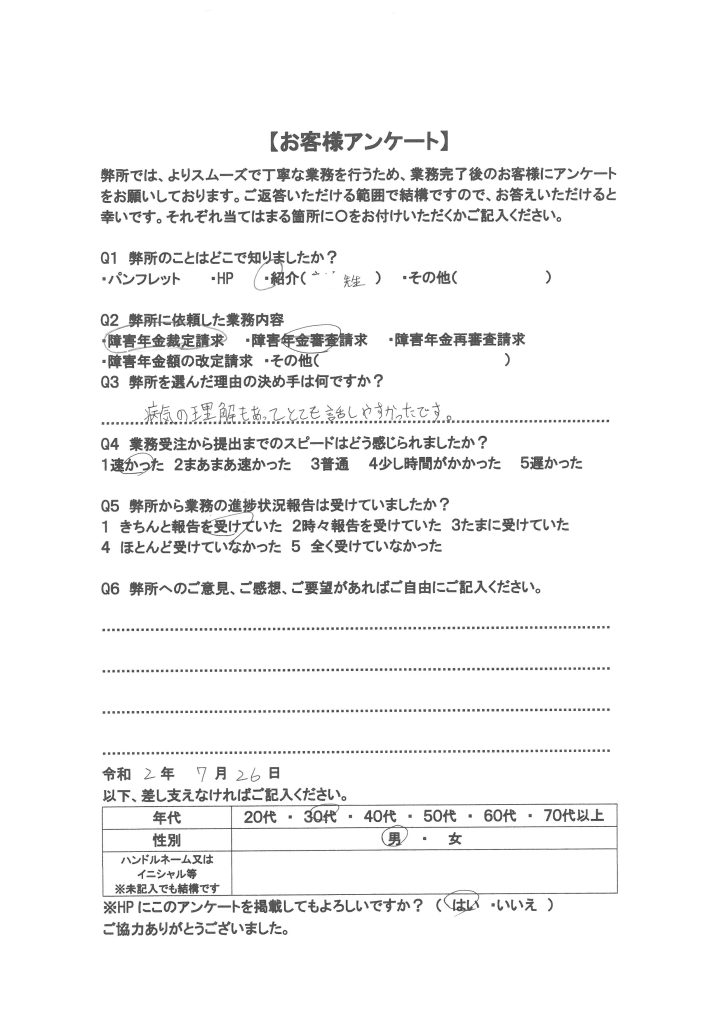 【お客様アンケート】
弊所では、よりスムーズで丁寧な業務を行うため、業務完了後のお客様にアンケート
をお願いしております。ご返答いただける範囲で結構ですので、お答えいただけると
幸いです。それぞれ当てはまる箇所に〇をお付けいただくかご記入ください。
Q1 弊所のことはどこで知りましたか？
・パンフレット ・HP ・紹介( ) ・その他( )
Q2 弊所に依頼した業務内容
・障害年金裁定請求 ・障害年金審査請求 ・障害年金再審査請求
・障害年金額の改定請求 ・その他( )
Q3 弊所を選んだ理由の決め手は何ですか？
病気の理解もあってとても話しやすかったです。
Q4 業務受注から提出までのスピードはどう感じられましたか？
1速かった 2まあまあ速かった 3普通 4少し時間がかかった 5遅かった
Q5 弊所から業務の進捗状況報告は受けていましたか？
1 きちんと報告を受けていた 2時々報告を受けていた 3たまに受けていた
4 ほとんど受けていなかった 5 全く受けていなかった
Q6 弊所へのご意見、ご感想、ご要望があればご自由にご記入ください。
令和 2 年 7 月 26 日
以下、差し支えなければご記入ください。
年代 20代 ・ 30代 ・ 40代 ・ 50代 ・ 60代 ・ 70代以上
性別 男 ・ 女
ハンドルネーム又は
イニシャル等
※未記入でも結構です
※HPにこのアンケートを掲載してもよろしいですか？ ( はい ・いいえ )
ご協力ありがとうございました。